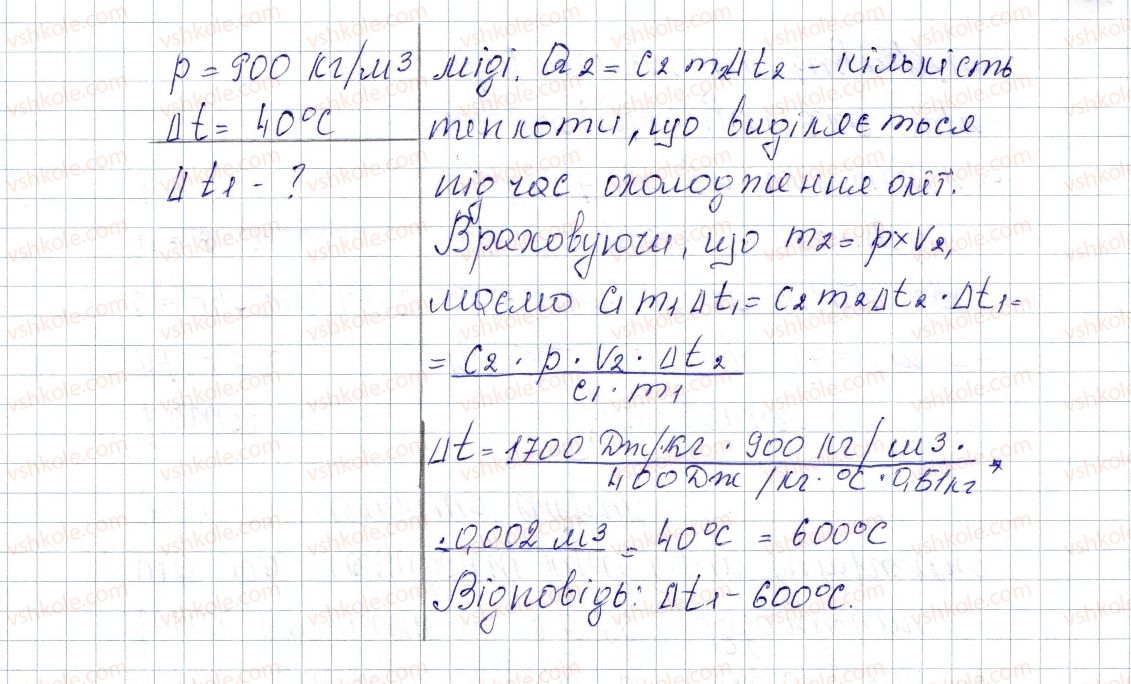 ρ = 900 кг/м3
Δt = 40°C
Δt1 - ?
міді. Q2 = c2 m2Δt2 - кількість
теплоти, що виділяється
під час охолодження олії.
Враховуючи, що m2 = ρ×V2,
маємо c1 m1 Δt1 = c2 m2Δt2 · Δt1 =
= c2 · ρ · V2 · Δt2
c1 · m1
Δt = 1700 Дж/кг · 900 кг/м3 ·
400 Дж /кг · °C · 0,51кг
· 0,002 м3 = 40°C = 600°C
Відповідь: Δt1 - 600°C.